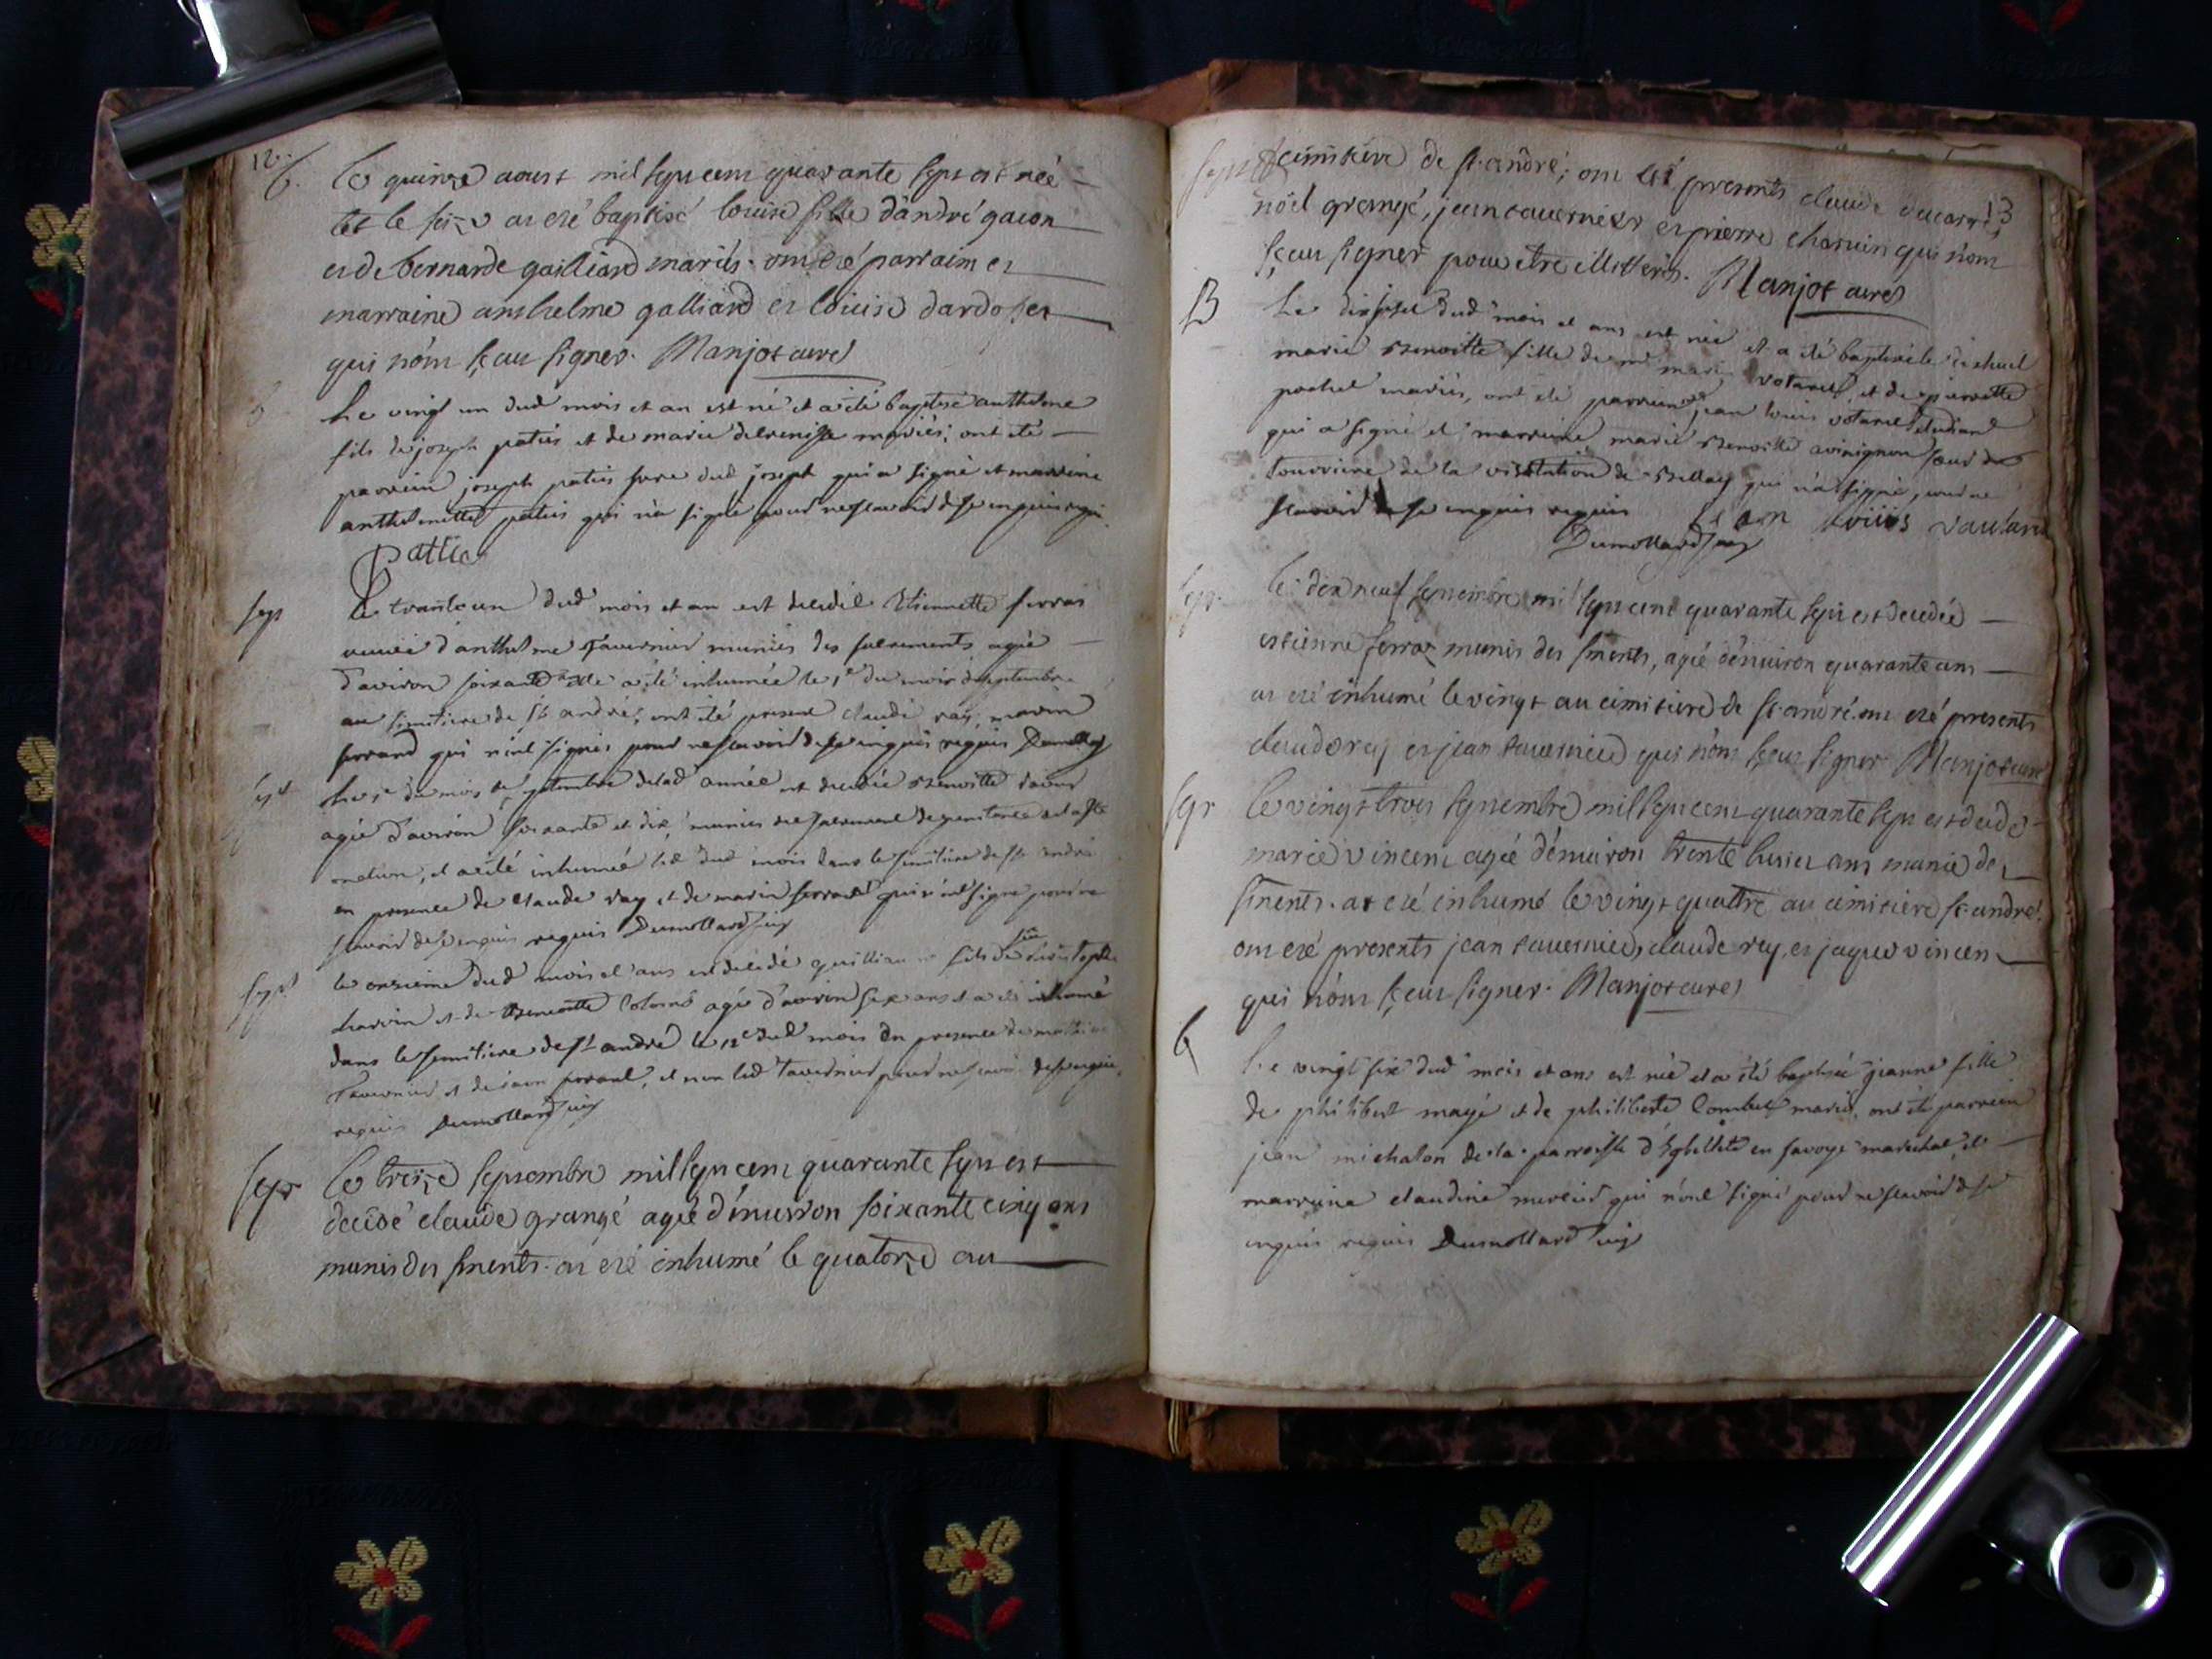 12.
b. le quinze aoust mil sept cent quarante sept est néé
et le seize at eté baptisé louise fille d'andré gacon
et de bernarde gailliard mariés. ont eté parrain et
marraine anthelme galliard et louise dardosset
qui n'ont sçeu signer. Manjot curé
Le vingt un dud mois et an est né et a été baptisé anthelme
fils de joseph patis et de marie mariés; ont été
parrein joseph patis frere dud joseph qui a signé et marrine
anthelmette patis qui n'a signé pour ne scavoir de ce enquis requi
Pattis
sept Le trante un dud mois et an est décédé Etiennette ferras
veuve d'anthelme Tavernier munies des sacrements agée
d'aviron soixante elle a été inhumée le 1er du mois de septembre
au simitiere de st andré; ont été present claude ray, marin
ferrand qui n'ont signés pour ne scavoir de ce enquis requis
Le du mois de septembre delad année est decedée Benoitte
agée d'aviron soixante et dix, munies du sacrement de penitence et
onction, et a été inhumée le dud mois dans le simitiere de st andré
en presence de claude ray et de marin ferrand qui n'ont signé pour ne
scavoir de ce enquis requis Dumollard
sept le onzieme dud mois et ans est décédé fils de
charvin et de Benoitte agé d'aviron six ans et a été inhumé
dans le simitiere de st andré le 12e dud mois en presence de
Tavernier et de ferrand, et non led Tavernier pour ne scavoir de ce enquis
requis Dumollard
sept Le treize septembre mil sept cent quarante sept est
decedé claude grangé agée d'enuirron soixante cinq ans
munis des sments. at eté inhumé le quatorze au
13
sept cimitiere de st. andré; ont eté presents claude
nöel grangé, jean tavernier et pierre charvin qui n'ont
sçeu signer pour etre illitterés. Manjot curé
B Le dix sept dud mois et ans est née et a été baptisée le dix huit
marie Benoitte fille de et de pierrette
pochet mariés, ont été parrein jean louis etudiant
qui a signé et marreine marie Benoitte sœur
tourriere de la visitation de Belley qui n'a signé, pour ne
scavoir de ce enquis requis jean louiis
Dumollard
sept. le dix neuf septembre mil sept cent quarante sept est decedée
estienne ferras munis des sments, agié d'enuiron quarante ans
at eté inhumé le vingt au cimitiere de st. andré. ont eté presents
claude ray et jean tavernier qui n'ont sçeu signer Manjot curé
sept le vingt trois septembre mil sept cent quarante sept est decedé
marie vincent agée d'enuiron trente huict ans munie des
sments. at eté inhumé le vingt quattre au cimitiere st. andré.
ont eté presents jean tavernier, claude ray, et jaques vincent
qui n'ont sçeu signer. Manjot curé
b Le vingt six dud mois et ans est née et a été baptisée jeanne fille
de philibert magé et de philiberte Combet mariés, ont été parrein
jean michalon de la parroisse d' en savoye marechal, et
marreine claudine qui n'ont signé pour ne scavoir de ce
enquis requis Dumollard